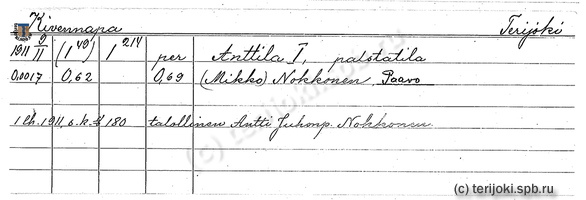 Kivennapa Terijoki
1911 9/11 (1⁴⁹) 1²¹⁴ per Anttila I, palstatila
0,0017 0,62 0,69 (Mikko) Nokkonen, Paavo
1 lh. 1911, s.k. 180 talollinen Antti Juhonp. Nokkonen
(c) terijoki.spb.ru
(c) terijoki.spb.ru